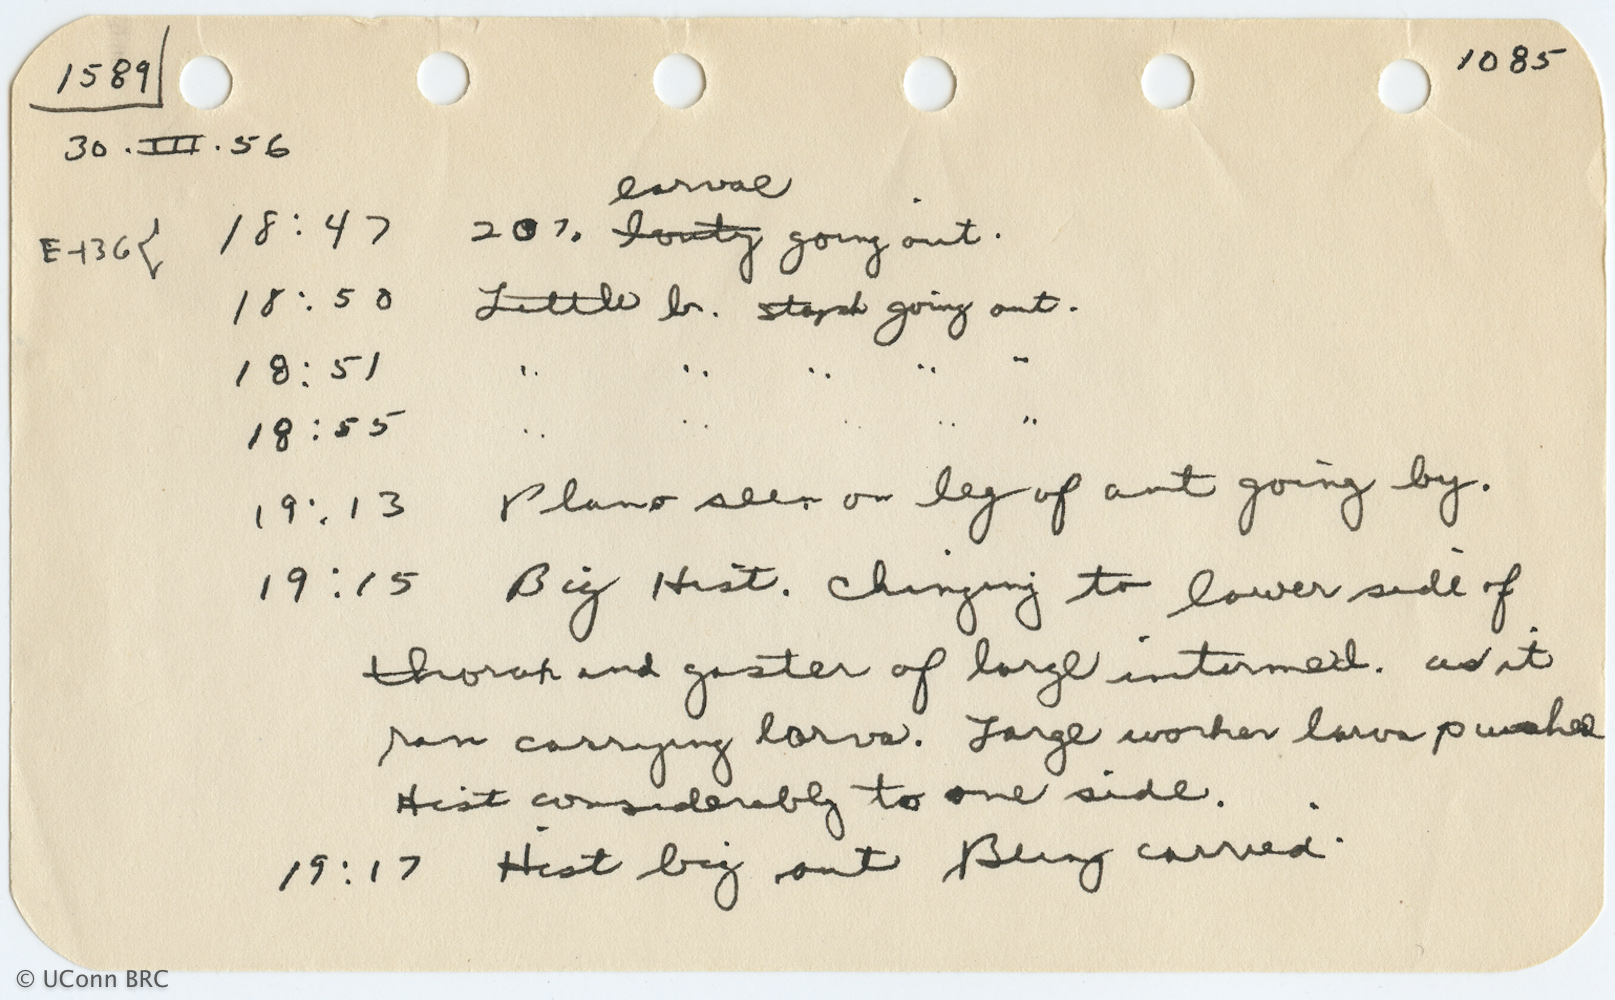 1589
1085
30.III.56
larvae
E-136 { 18:47 20%. booty going out.
18:50 Little br. staph going out.
18:51 " " " " "
18:55 " " " " "
19:13 Plano seen on leg of ant going by.
19:15 Big Hist. clinging to lower side of
thorax and gaster of large intermed. as it
ran carrying larva. Large worker larva pushed
Hist considerably to one side.
19:17 Hist big out Being carried.
© UConn BRC